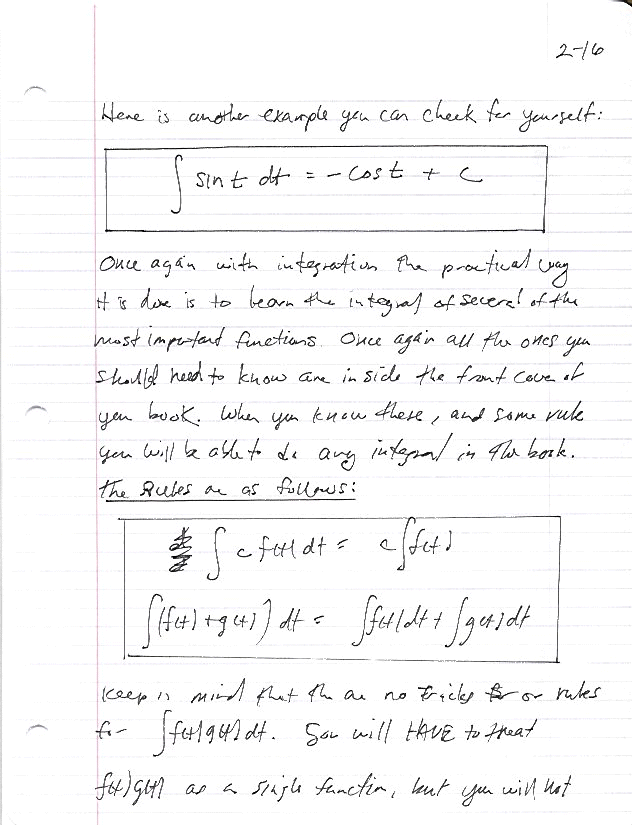 2-16
Here is another example you can check for yourself:
∫ sin t dt = -cos t + c
Once again with integration the practical way
it is done is to learn the integral of several of the
most important functions. Once again all the ones you
should need to know are inside the front cover of
you book. When you know these, and some rule
you will be able to do any integral in the book.
The Rules are as follows:
∫ c f(t) dt = c ∫ f(t)
∫ (f(t) + g(t)) dt = ∫ f(t) dt + ∫ g(t) dt
Keep in mind that the are no tricks or rules
for ∫ f(t) g(t) dt. You will HAVE to treat
f(t) g(t) as a single function, but you will not